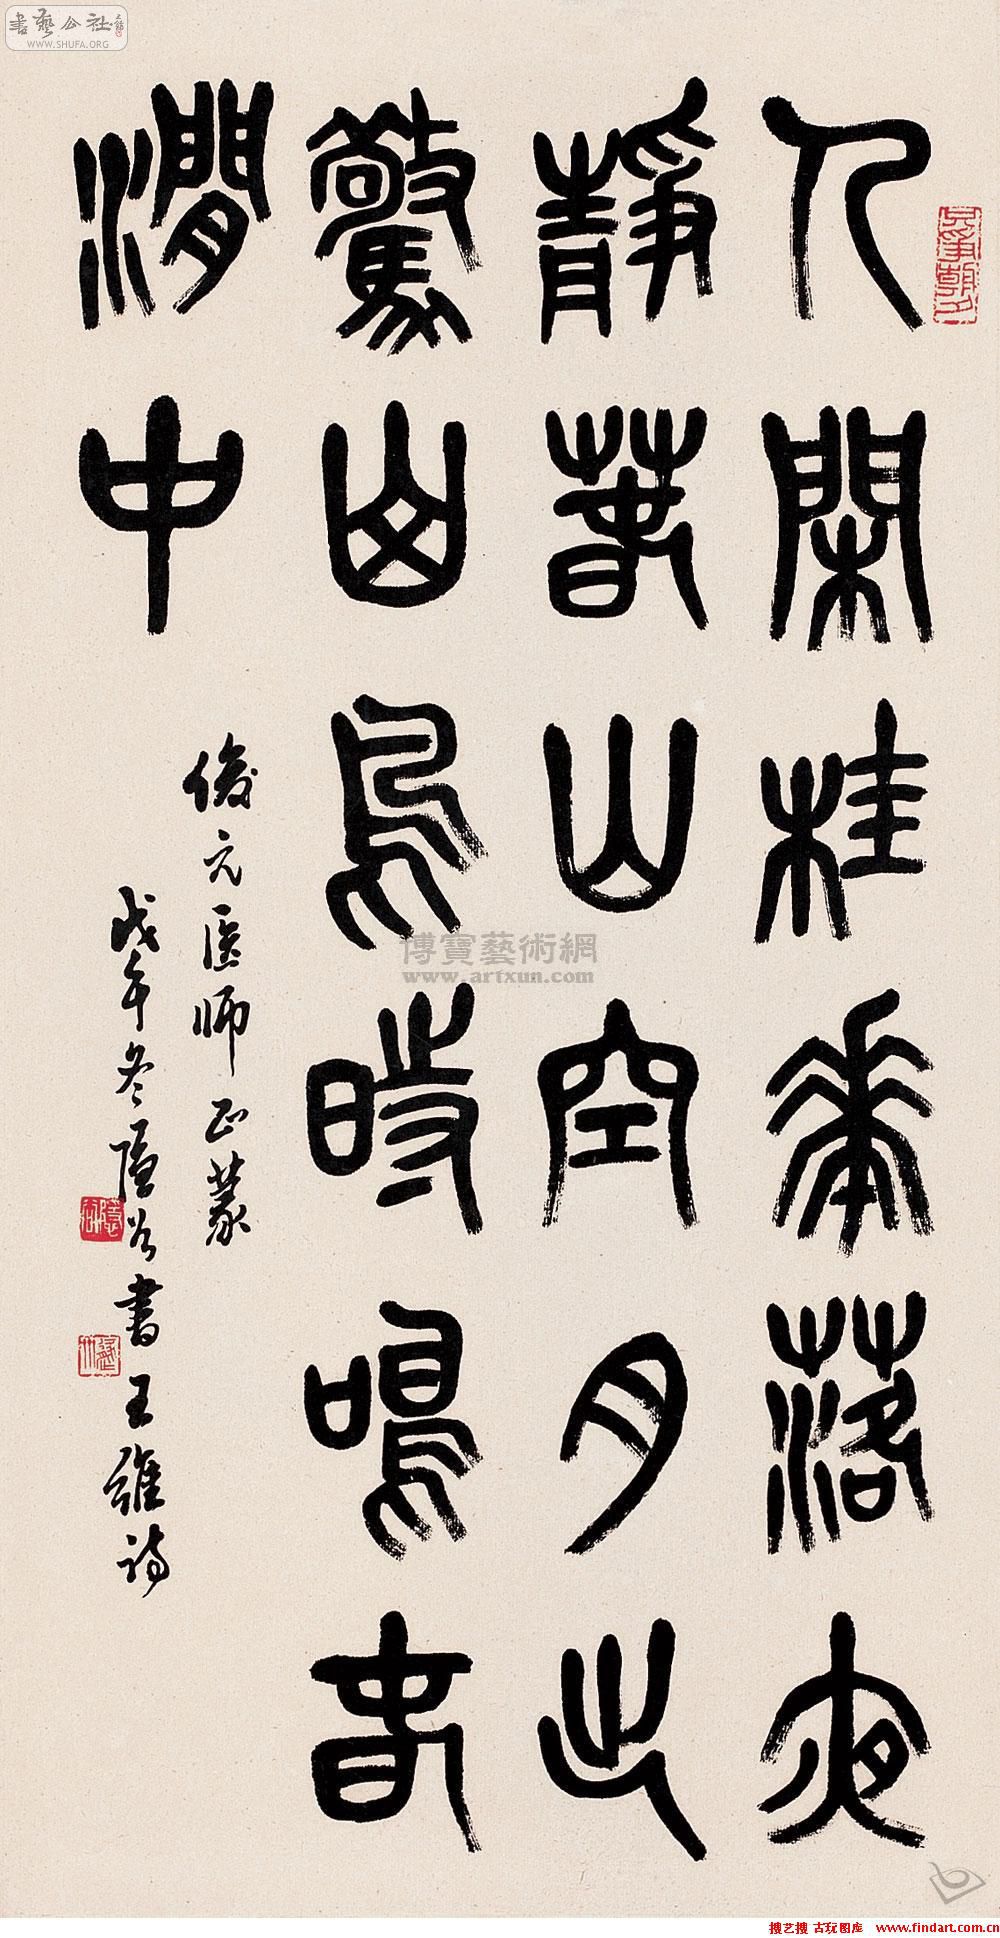 人閑桂華落夜
靜春山空月出
驚山鳥時鳴春
澗中
俊元医師正篆
戊午冬隱谷書王維詩
只爭朝夕
書藝公社
WWW.SHUFA.ORG
博寶藝術網
www.artxun.com
搜艺搜 古玩图库 www.findart.com.cn